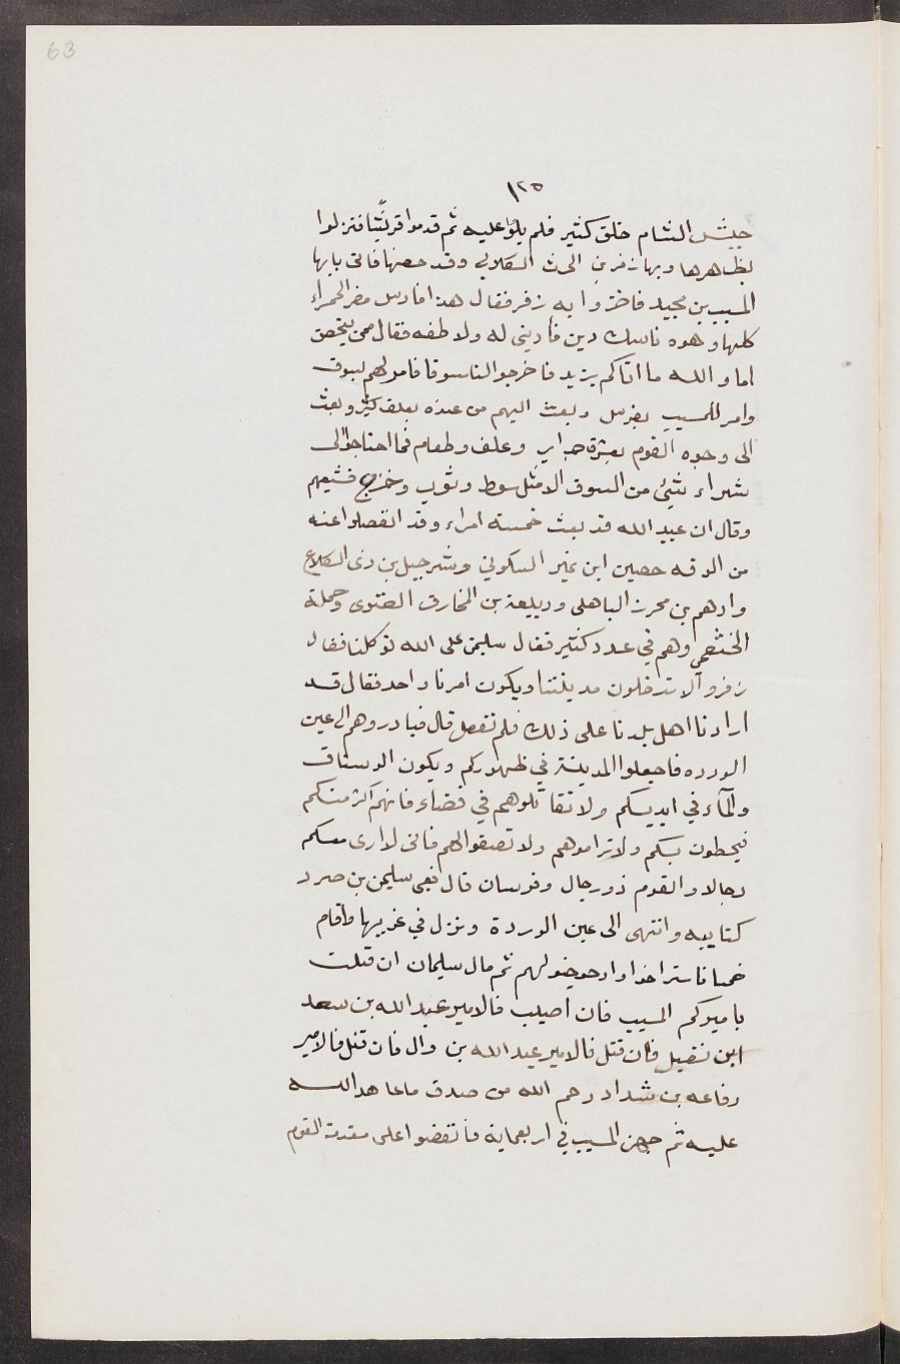 63
١٢٥
جيش الشام خلق كثير فلم يلوا عليه ثم قدموا قرقيسيا فنزلوا
بظاهرها وبها زفر بن الحرث الكلابي وقد حصنها فاتى بابها
المسيب بن فاخبروا به زفر فقال هذا فارس مضر الحمراء
كلها وهوه ناسك دين فأدينى له ولاطفه فقال ممن يتحصن
اما والله ما اتاكم يزيد فاخرجوا لنا سوقا فامر لهم بسوق
وامر للمسيب بفرس وبعث اليهم من عنده بعلف كثير وبعث
الى وجوه القوم بعشرة جزاير وعلف وطعام فما احتاجوا الى
شراء شئ من السوق الا مثل سوط وثوب وخرج فشيعهم
وقال ان عبيد الله قد بعث خمسة امراء وقد انفصلوا عنه
من الرقه حصين ابن نمير السكوني وشرحبيل بن ذى الكلاع
وادهم بن محرز الباهلى وربيعة بن المخارق الغنوى وجملة
الخثعمي وهم في عدد كثير فقال سليمن على الله توكلنا فقال
زفر وآلا تدخلون مدينتنا ويكون امرنا واحد فقال قد
ارادنا اهل بلدنا على ذلك فلم نفعل قال فبادروهم الى عين
الورده فاجعلوا المدينة في ظهوركم ويكون الرستاق
والمآء في ايديكم ولا تقاتلوهم في فضاء فانهم اكثر منكم
فيحطون بكم ولا تراموهم ولا تصفوا لهم فانى لا ارى معكم
رجالا والقوم ذو رجال وفرسان قال فعبى سليمن بن صرد
كتايبه وانتهى الى عين الوردة ونزل في غربيها واقام
خمسا فاستراحوا واراحوا خيولهم ثم قال سليمان ان قتلت
باميركم المسيب فان اصيب فالامير عبد الله بن سعد
ابن نفيل فان قتل فالامير عبد الله بن وال فان قتل فالامير
رفاعه بن شداد رحم الله من صدق ما عاهد الله
عليه ثم جهز المسيب في اربعماية فانقضوا على مقدمة القوم